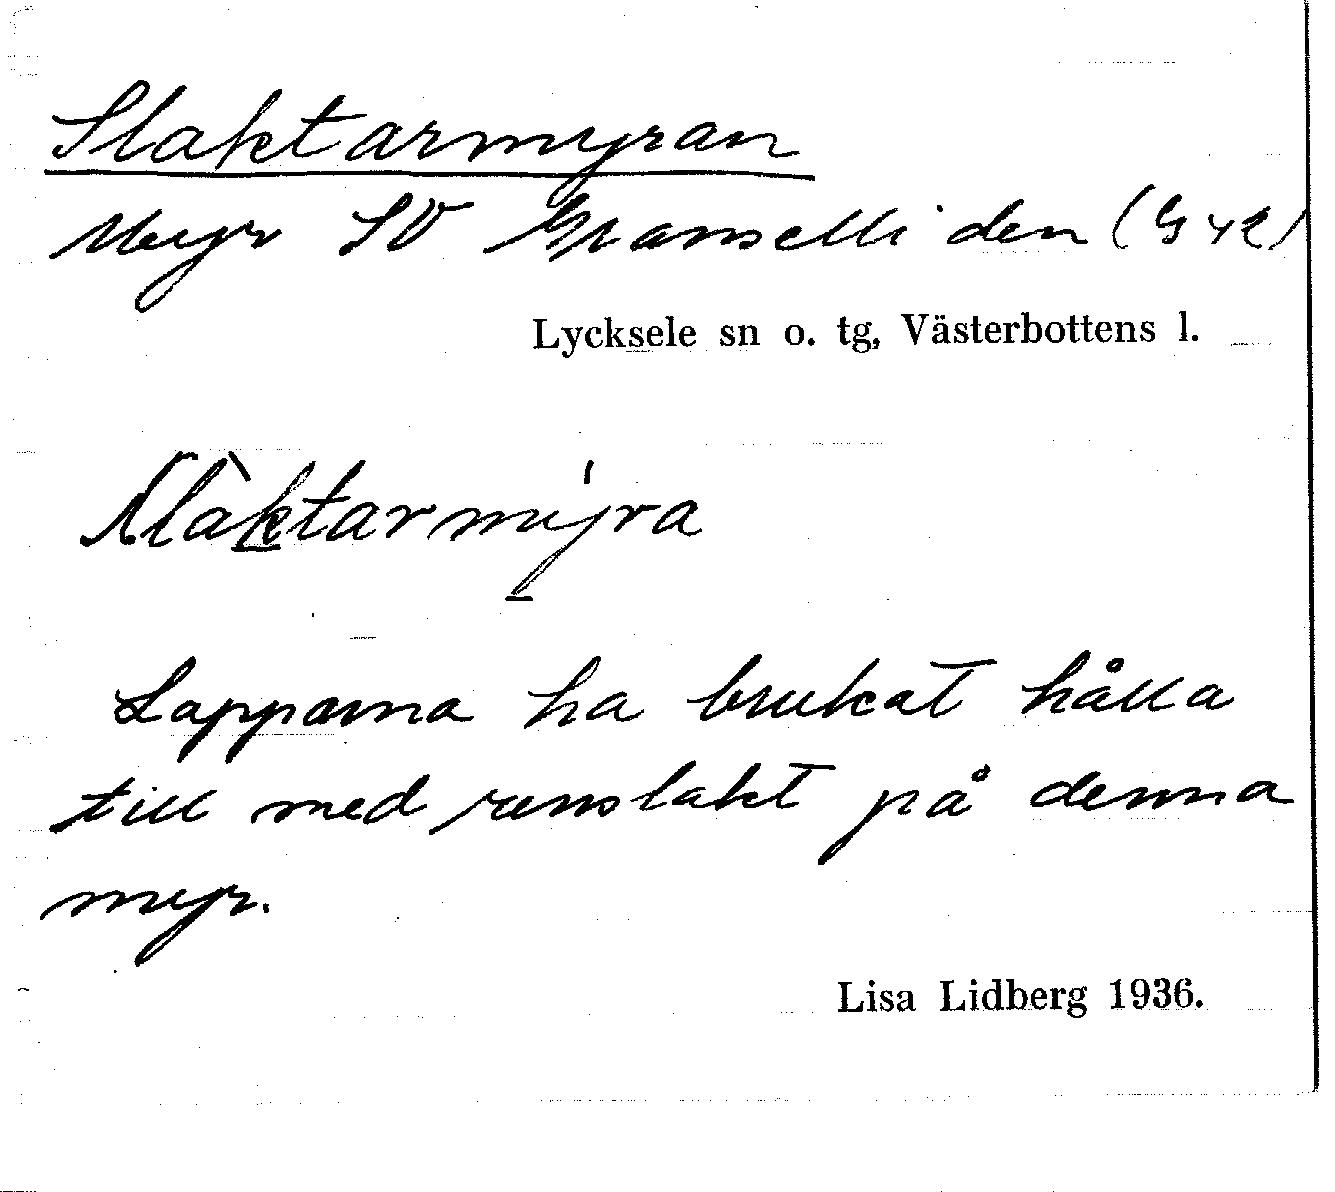 Slaktarmyran
Myr SV Granselliden (G 42)
Lycksele sn o. tg, Västerbottens l.
slàktarmýra
Lapparna ha brukat hålla
till med renslakt på denna
myr.
Lisa Lidberg 1936.